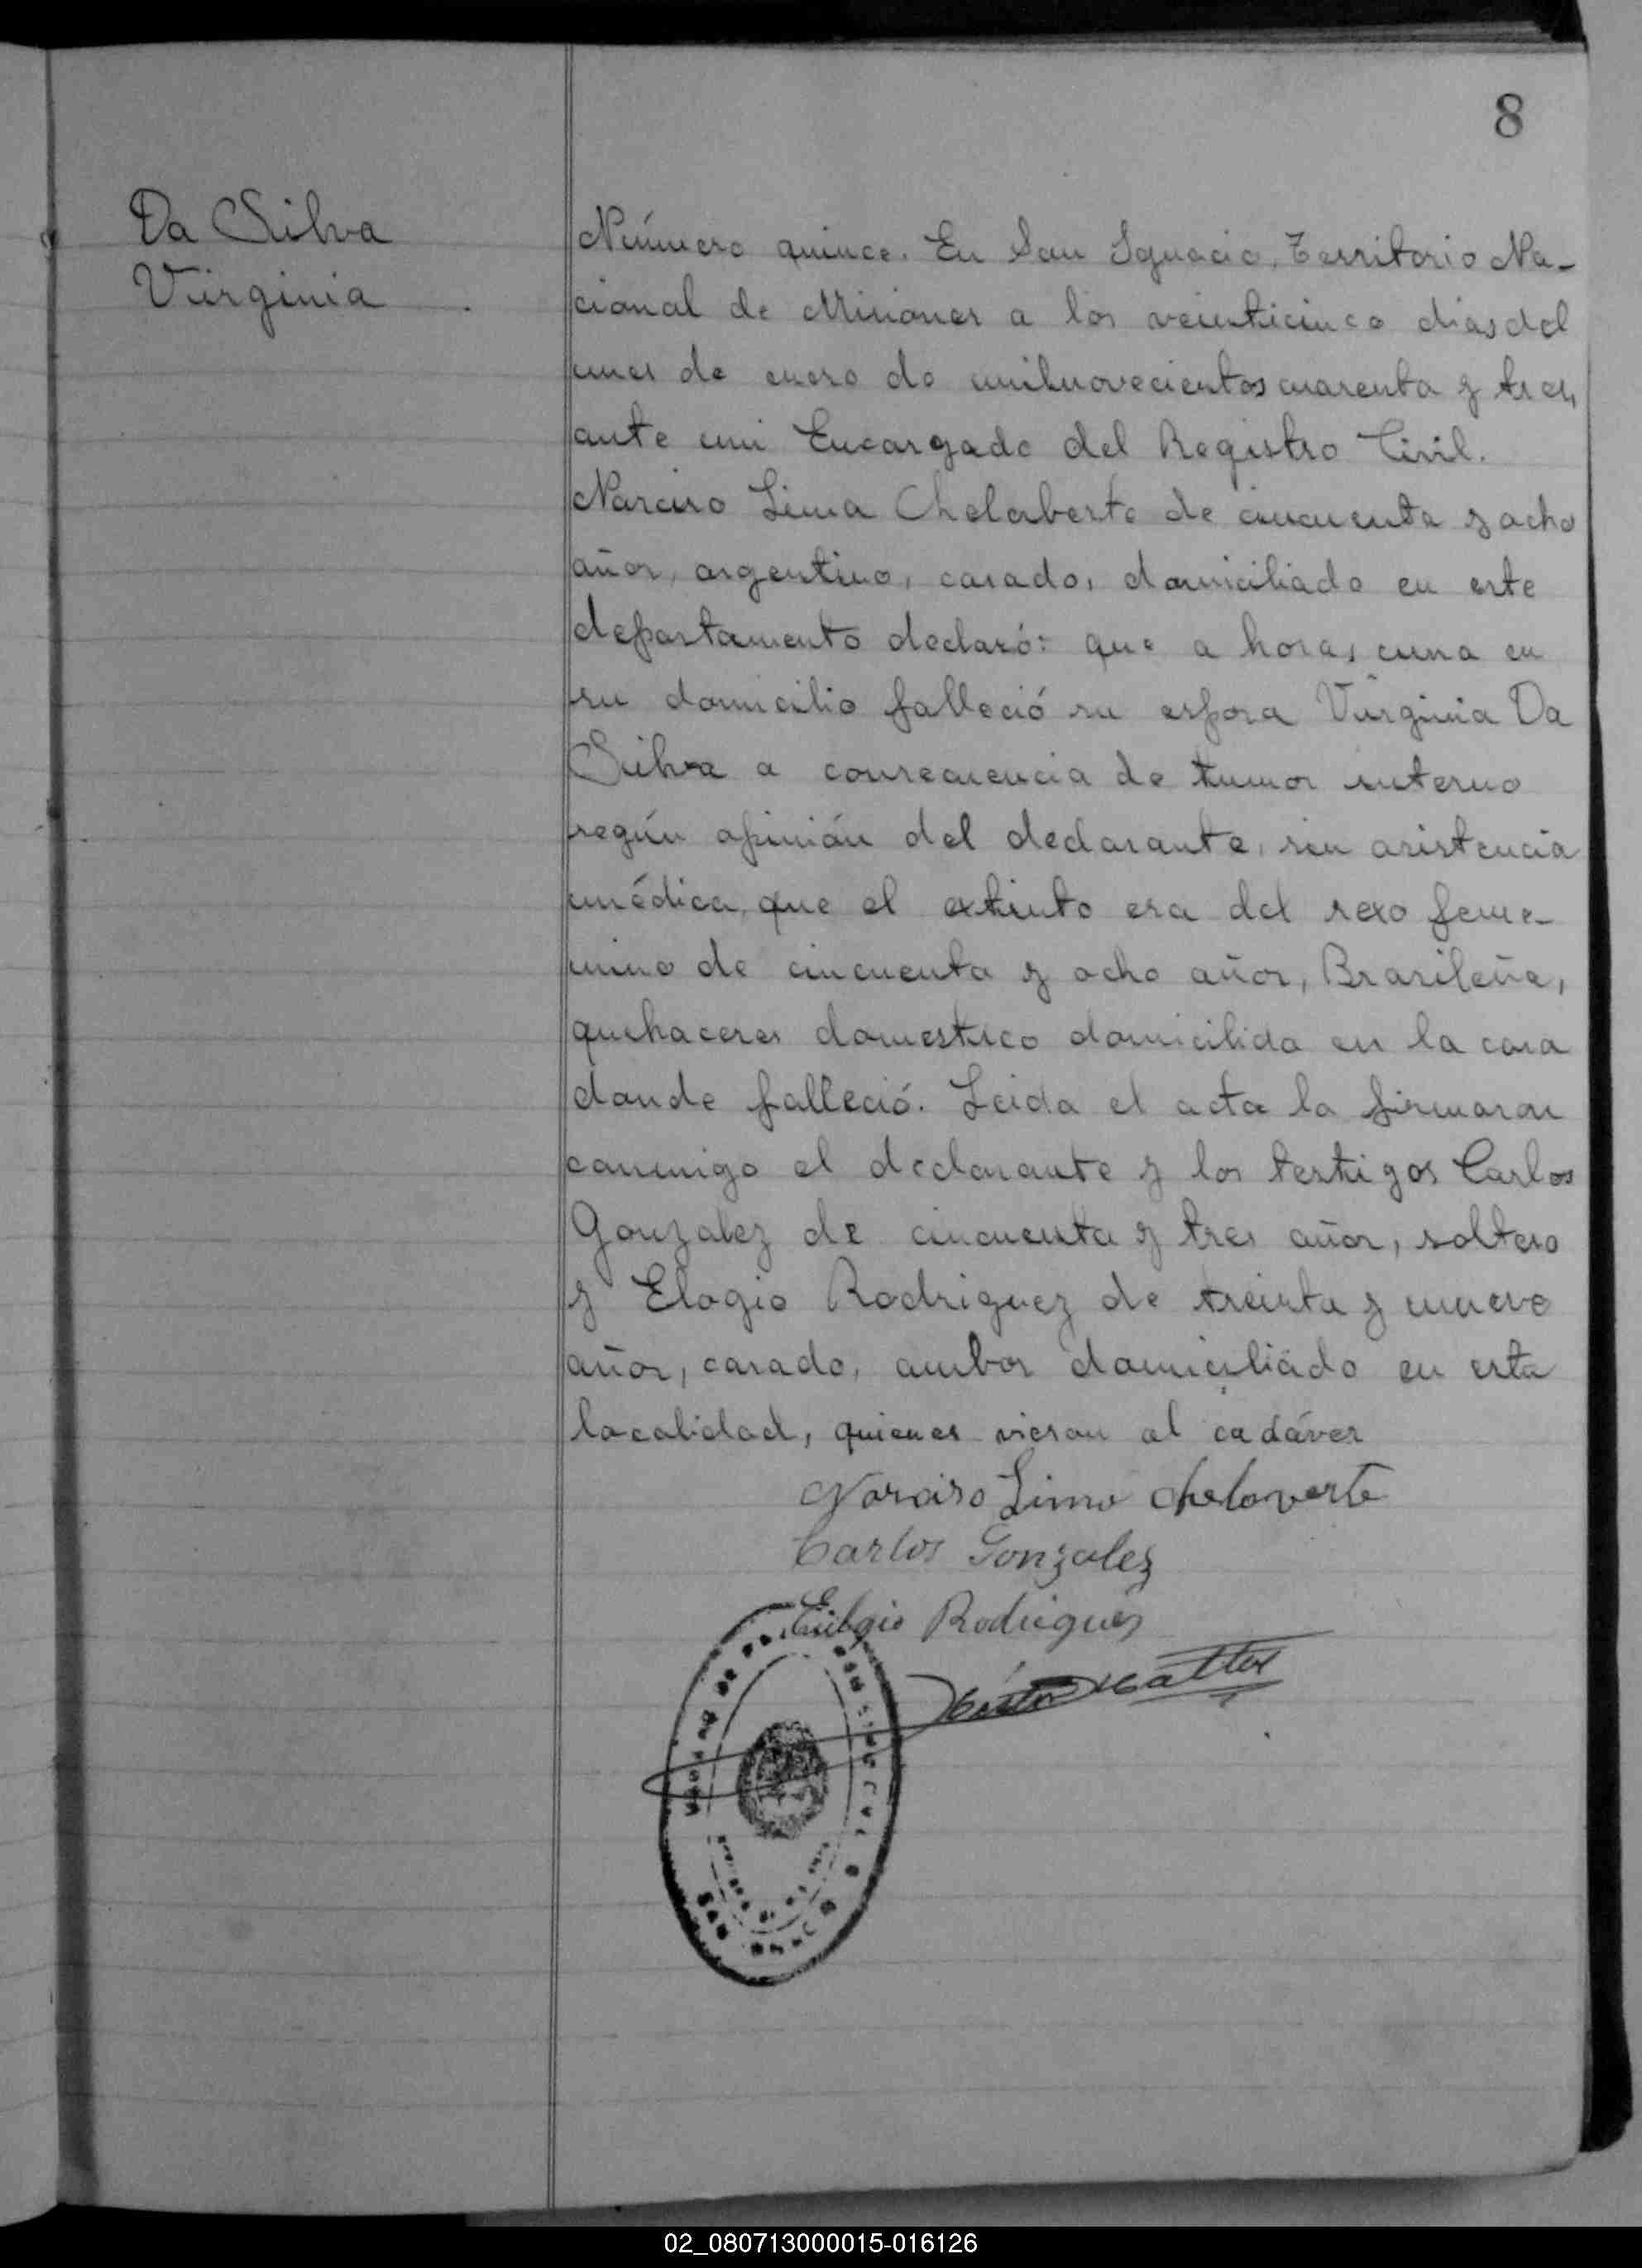 8
Da Silva
Virginia
Número quince. En San Ignacio, Territorio Na-
cional de Misiones a los veinticinco dias del
mes de enero de milnovecientos cuarenta y tres,
ante mi Encargado del Registro Civil.
Narciso Lima Chelaberte de cincuenta y ocho
años, argentino, casado, domiciliado en este
departamento declaró: que a horas una en
su domicilio falleció su esposa Virginia Da
Silva a consecuencia de tumor interno
según opinión del declarante, sin asistencia
médica, que el extinto era del sexo feme-
nino de cincuenta y ocho años, Brasileña,
quehaceres domestico domicilida en la casa
donde falleció. Leida el acta la firmaron
conmigo el declarante y los testigos Carlos
Gonzalez de cincuenta y tres años, soltero
y Elogio Rodriguez de treinta y nueve
años, casado, ambos domiciliado en esta
localidad, quienes vieron al cadáver
Narciso Lima Chelaverte
Carlos Gonzalez
Rodriguez
SAN
02_080713000015-016126